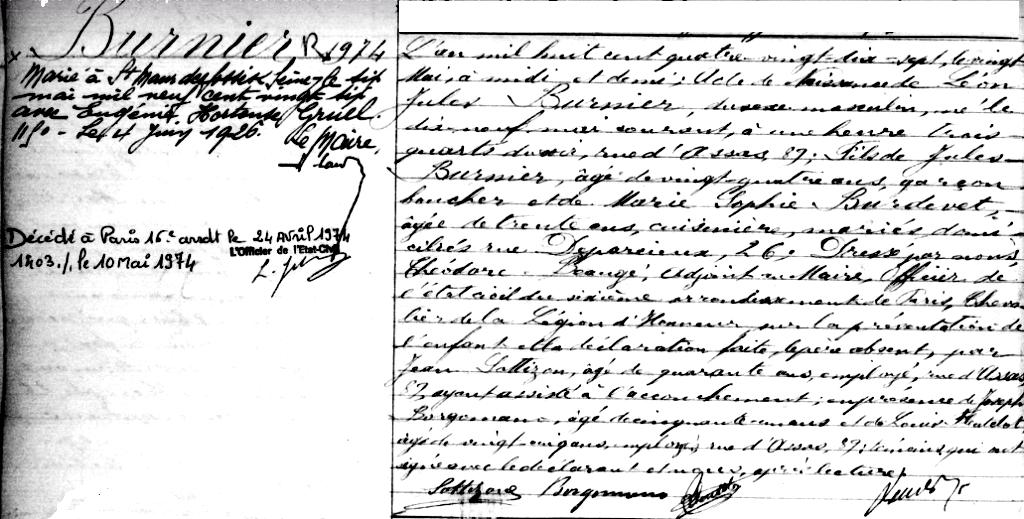 Burnier R 1974
Marié à St Maur des Fossés Seine le six
mai mil neuf cent vingt six
avec Eugénie Hortense Gruel.
Le 4 Juin 1926.
Le Maire,
Décédé à Paris 16e arrdt le 24 Avril 1974
1403./. le 10 Mai 1974
L'Officier de l'Etat-Civil
L'an mil huit cent quatre-vingt-dix-sept, le vingt
Mai, à midi et demi; Acte de Naissance de Léon
Jules Burnier, du sexe masculin, né le
dix-neuf mai courant, à une heure trois
quarts du soir, rue d'Assas, 87; Fils de Jules
Burnier, âgé de vingt-quatre ans, garçon
boucher et de Marie Sophie Burdevet,
âgée de trente ans, cuisinière, mariés, domi-
ciliés rue Deparcieux, 26. Dressé par nous
Théodore Beaugé, adjoint au Maire, Officier de
l'état civil du sixième arrondissement de Paris, Cheva-
lier de la Légion d'Honneur sur la présentation de
l'enfant et la déclaration faite, le père absent, par
Jean Sottizon, âgé de quarante ans, employé, rue d'Assas
87, ayant assisté à l'accouchement; en présence de Joseph
Borgomano, âgé de cinquante-un ans et de Louis
âgé de vingt-cinq ans, employés, rue d'Assas, 87; témoins qui ont
signé avec le déclarant et nous, après lecture.
Borgomano